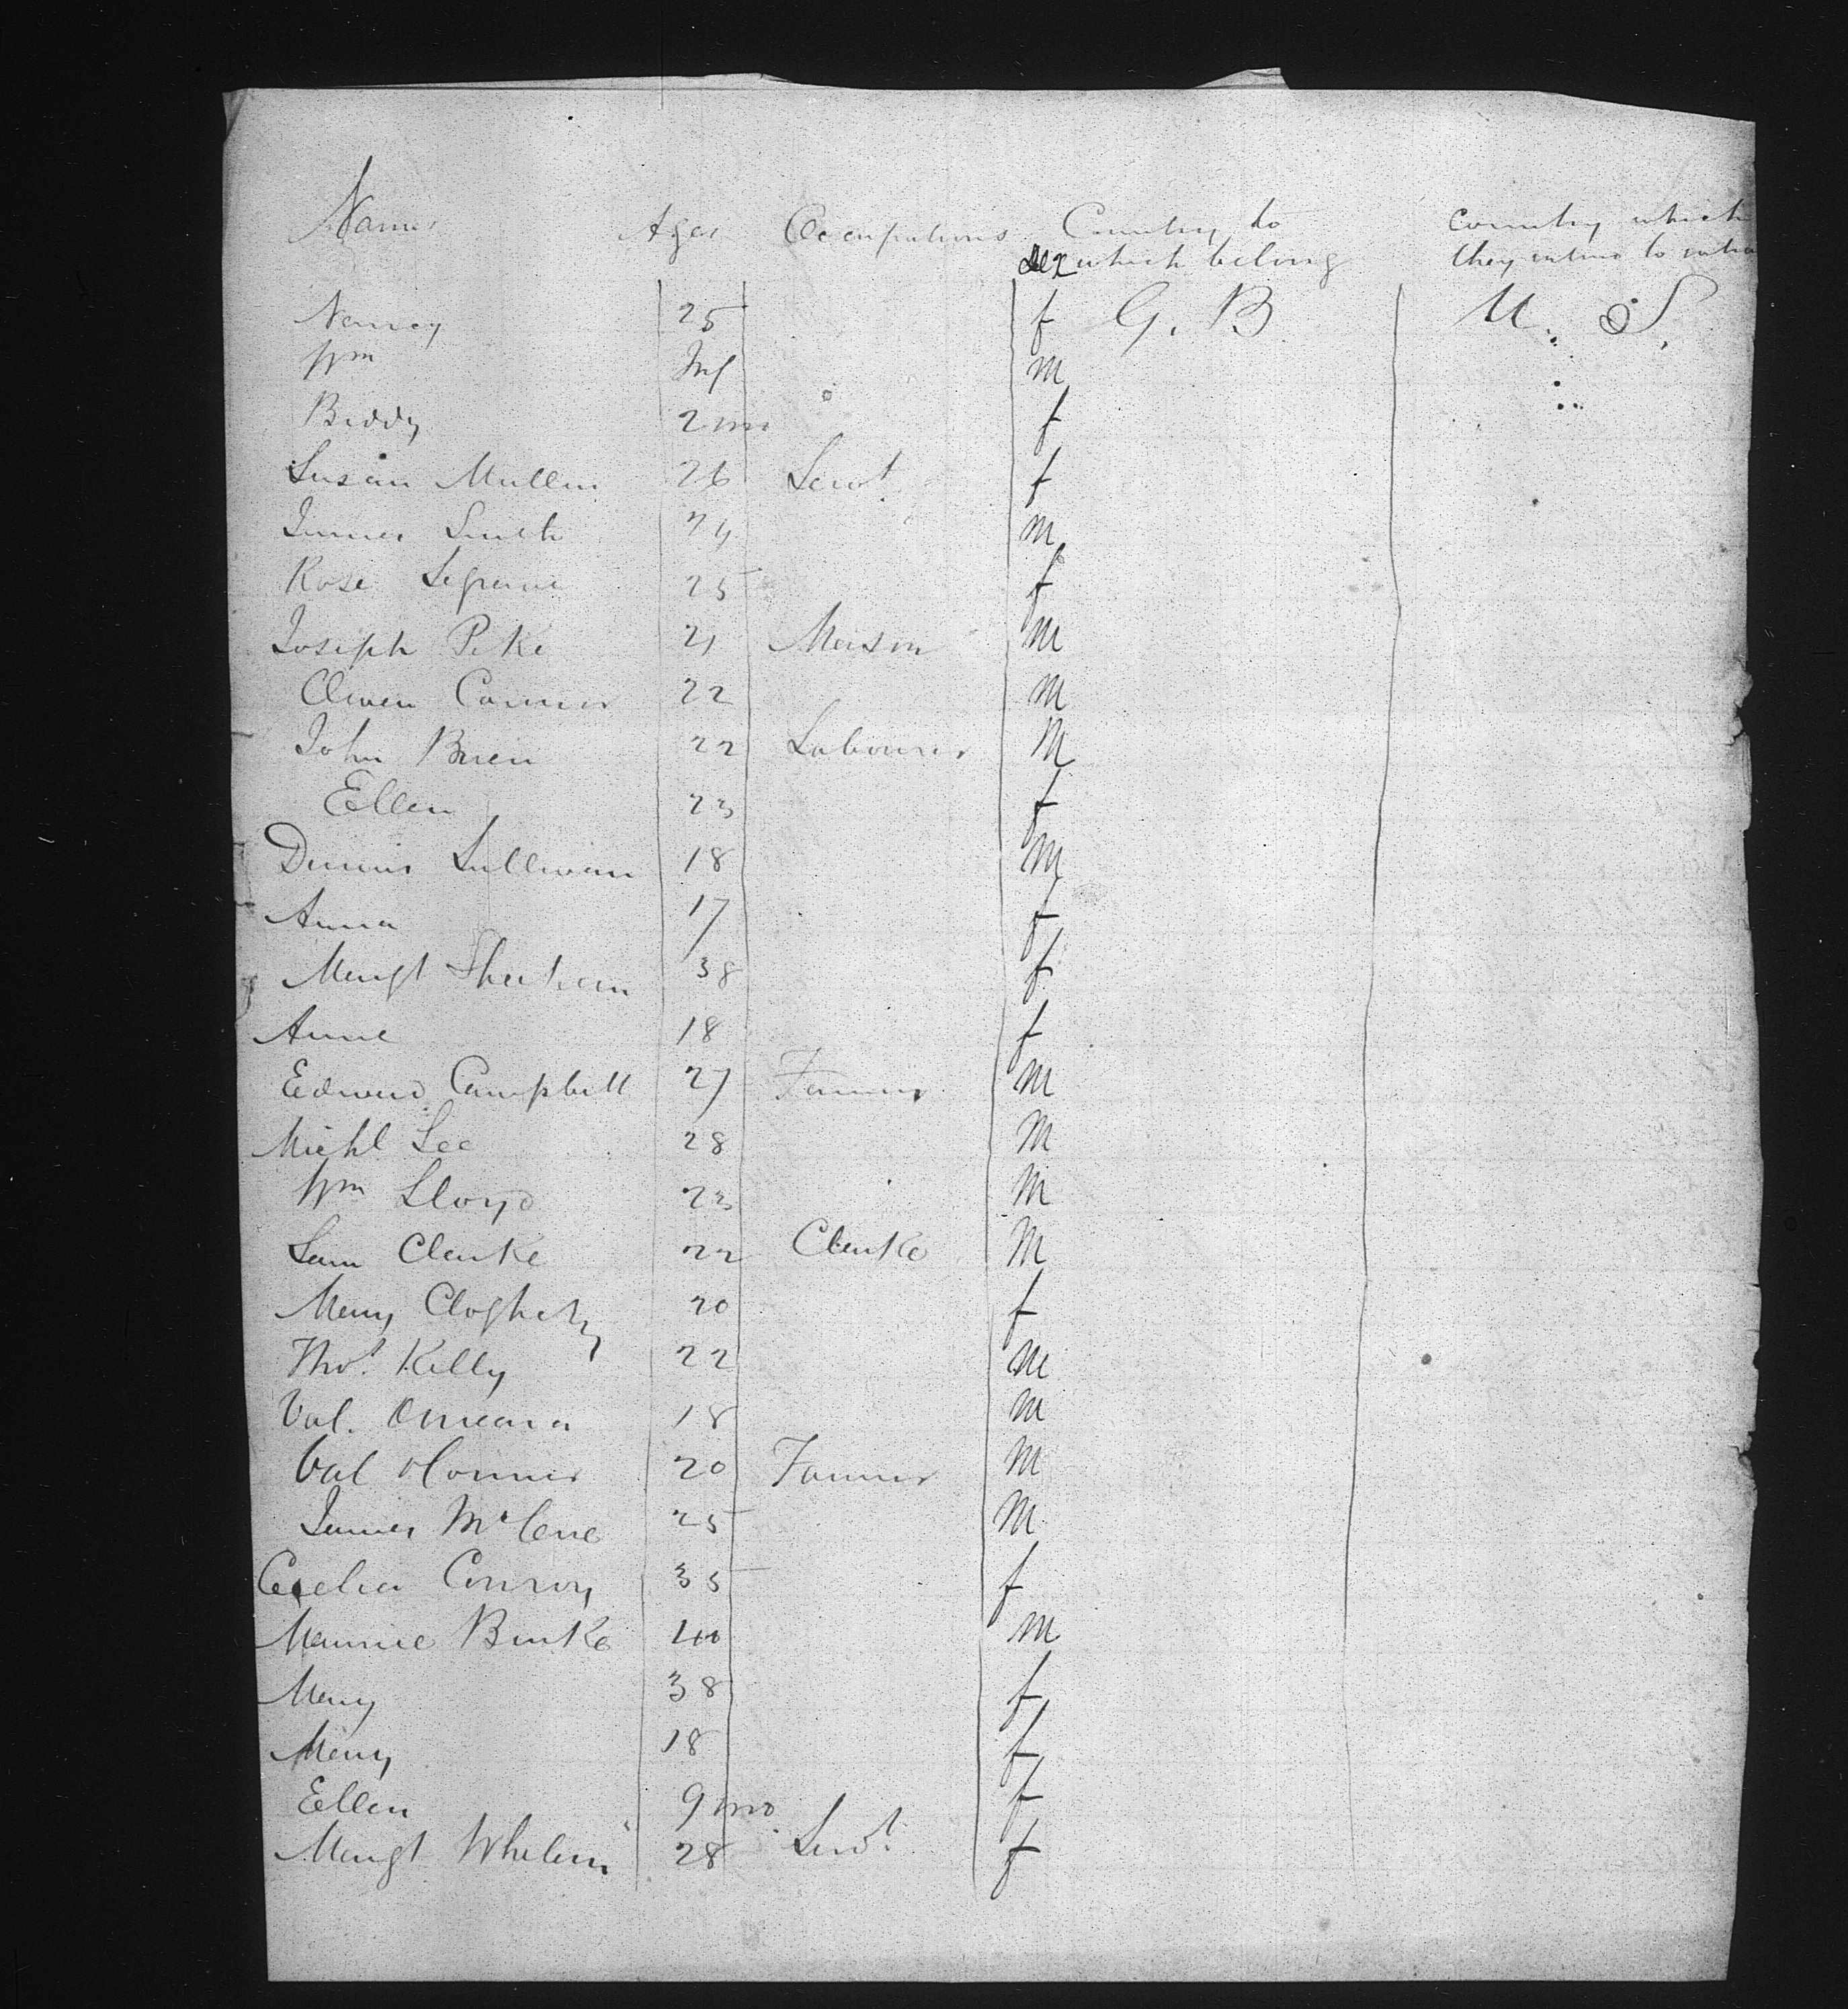 Names Ages Occupations sex Country to which belong Country which they intend to
Nancy 25 f G. B U. S.
Wm Inf m
Biddy 2 mo f
Susan Mullen 26 Servt. f
James Smith 24 m
Rose 25 f
Joseph Pike 21 Mason m
Owen Connor 22 m
John Brien 22 Labourer M
Ellen 23 f
Dennis Sullivan 18 m
Anna 17 f
Margt 38 f
Anne 18 f
Edward Campbell 27 Farmer m
Michl Lee 28 M
Wm Lloyd 23 M
Sam Clarke 22 Clarke M
Mary Cloghety 20 f
Thos. Kelly 22 m
Val. Omeara 18 m
Val oConner 20 Farmer M
James 25 M
Cecelia Conroy 35 f
Maurice Burke 40 m
Mary 38 f
Mary 18 f
Ellen 9 mo f
Margt Whelan 28 Servt. f